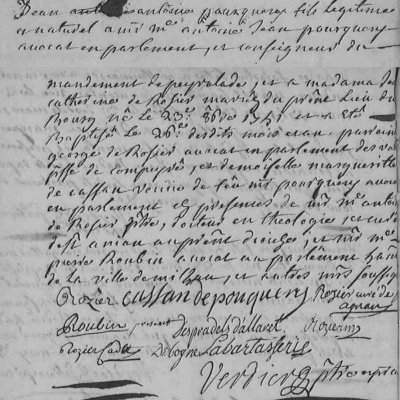 Jean antoine pourquery fils legitime
et naturel a mr me antoine Jean pourquery
avocat en parlement et conseigneur du
mandement de peyrelade, et a madame
catherine de Rosier mariés du pr̃ent lieu du
Bourg né le 23e 8bre 1751 et a eté
Baptisé le 26e desdits mois et an. parrain
george de Rosier avocat en parlement
de compeyre, et demoiselle marguerite
de cassan veuve de feu mr pourquery avocat
en parlement es presences de mr me antoine
de Rosier ptre, docteur en theologie, et curé
d'st anian au present diocese, et mr me
pierre Roubin avocat au parlement
de la ville de milhau, et autres nos soussignés
Rozier cassan de pourquery Rozier curé de
agnan
Roubin present Despradels dallaret. Rozier
Rozier Cadet Debogne Labartasserie
Verdier ptre